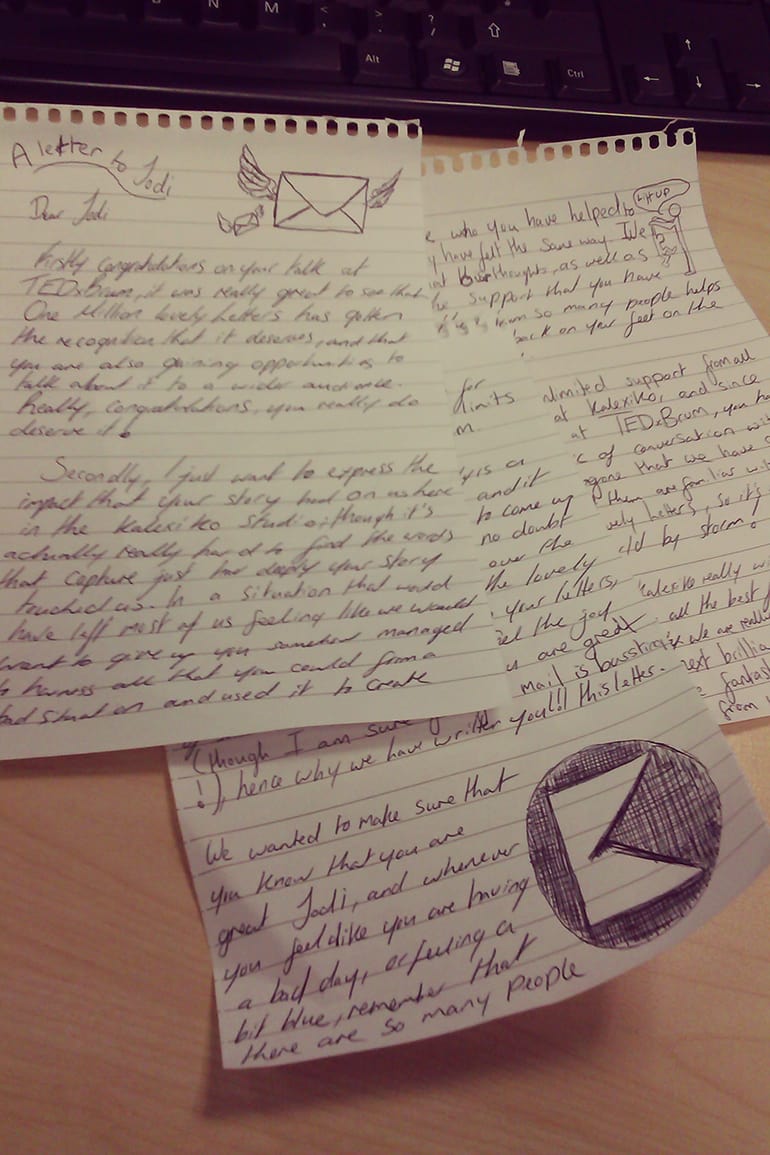 Alt
Ctrl
N
M
A letter to Jodi
Dear Jodi
Firstly congratulations on your talk at
TEDxBrum, it was really great to see that
One Million lovely Letters has gotten
the recognition that it deserves, and that
you are also gaining opportunities to
talk about it to a wider audience.
Really, congratulations, you really do
deserve it.
Secondly, I just want to express the
impact that your story had on us here
in the Kalexiko Studio, though it's
actually really hard to find the words
that capture just how deeply your story
touched us. In a situation that would
have left most of us feeling like we would
want to give up you somehow managed
to harness all that you could from a
bad situation and used it to create
LIFT UP
who you have helped to
have felt the same way. I've
thoughts, as well as
support that you have
from so many people helps
back on your feet on the
for
limits
is a
and it
to come up
no doubt
over the
the lovely
your letters,
the joy
are great
mail is bursting
unlimited support from all
at Kalexiko, and since
at TEDxBrum, you
of conversation
that we have
them are familiar
Letters, so it's
by storm!
Kalexiko really
all the best
we are really
brilliant
from
(though I am sure
!), hence why we have written you!!! this letter.
We wanted to make sure that
you know that you are
great Jodi, and whenever
you feel like you are having
a bad day, or feeling a
bit blue, remember that
there are so many people